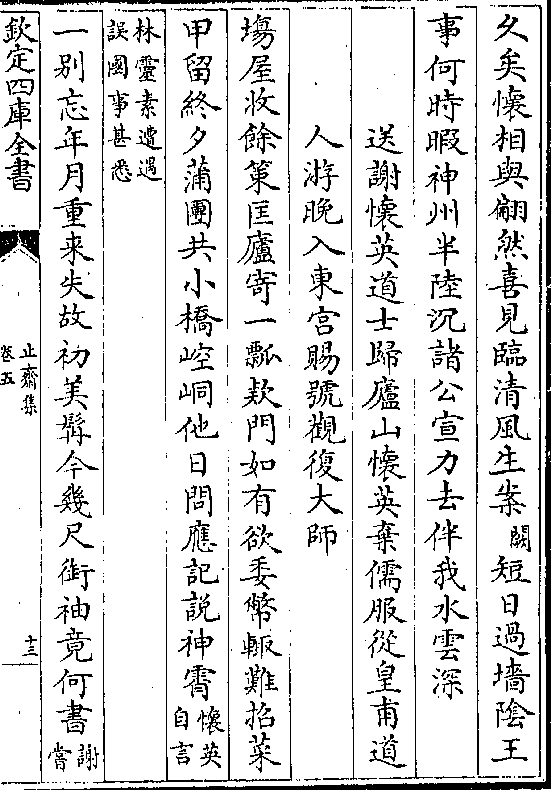 久矣懷相與翩然喜見臨清風生崇闕短日過墻隂王
事何時暇神州半陸沉諸公宣力去伴我水雲深
送謝懷英道士歸廬山懷英棄儒服從皇甫道
人游晚入東宫賜號觀復大師
塲屋收餘策匡廬寄一瓢欵門如有欲委幣輙難招菜
甲留終夕蒲團共小橋崆峒他日問應記說神霄懷英自言
林靈素遭遇誤國事甚悉
一别忘年月重来失故初美髯今幾尺銜袖竟何書謝嘗
欽定四庫全書
止齋集
卷五
十三